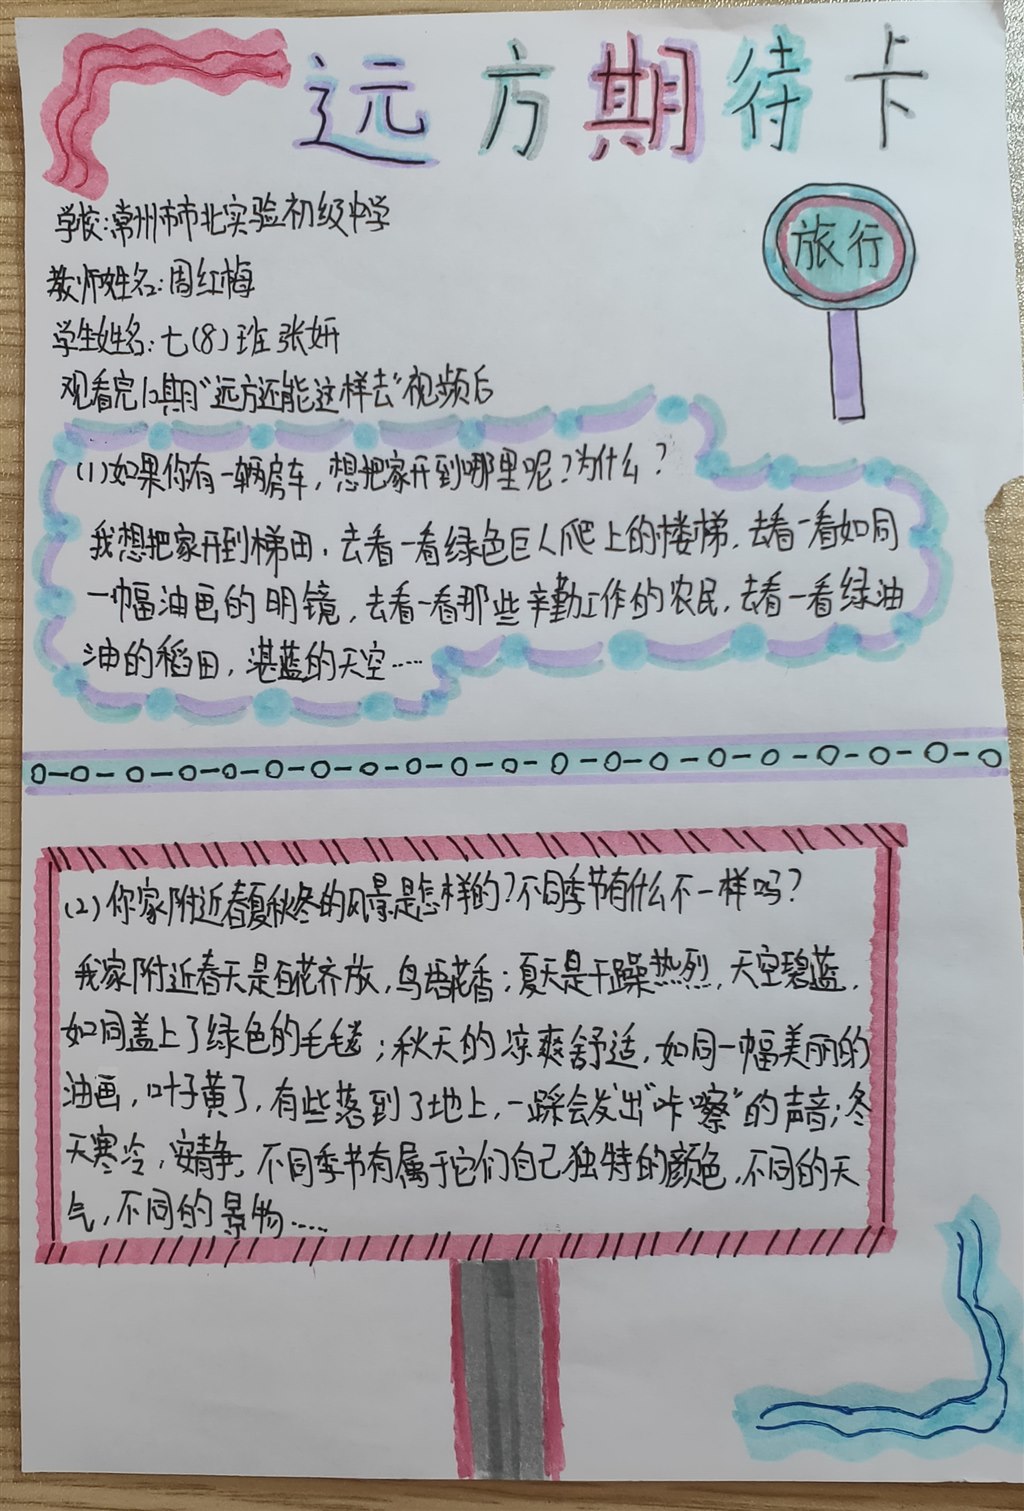 远方期待卡
旅行
学校:常州市市北实验初级中学
教师姓名:周红梅
学生姓名:七(8)班 张妍
观看完12期“远方还能这样去”视频后
(1)如果你有一辆房车,想把家开到哪里呢?为什么?
我想把家开到梯田,去看一看绿色巨人爬上的楼梯,去看一看如同
一幅油画的明镜,去看一看那些辛勤工作的农民,去看一看绿油
油的稻田,湛蓝的天空……
(2)你家附近春夏秋冬的风景是怎样的?不同季节有什么不一样吗?
我家附近春天是百花齐放,鸟语花香;夏天是干躁热烈,天空碧蓝,
如同盖上了绿色的毛毯;秋天的凉爽舒适,如同一幅美丽的
油画,叶子黄了,有些落到了地上,一踩会发出“咔嚓”的声音;冬
天寒冷,安静,不同季节有属于它们自己独特的颜色,不同的天
气,不同的景物……